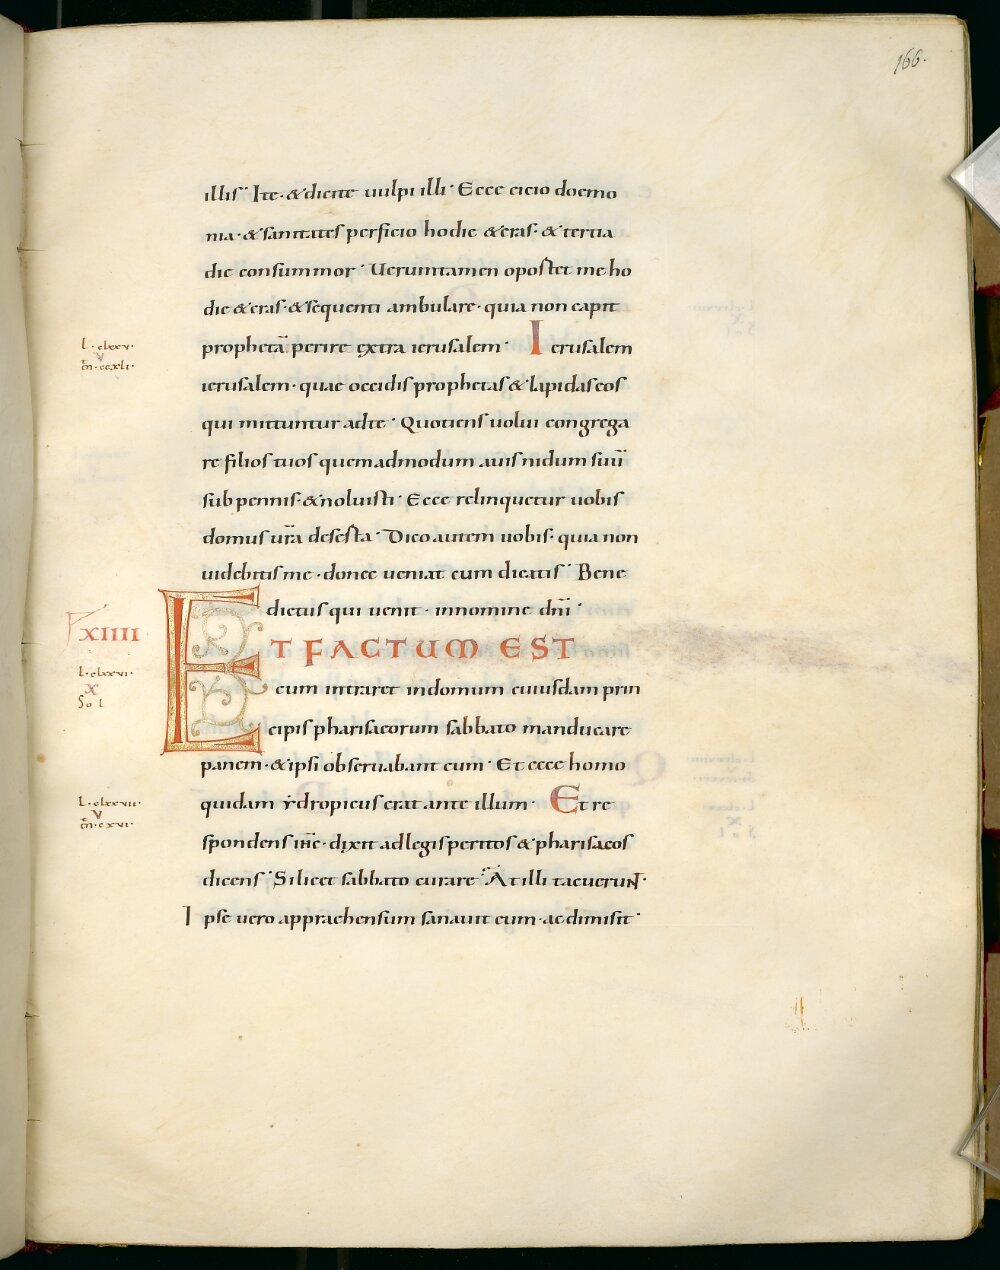 166.
illis· Ite· & dicite uulpi illi· Ecce eicio doemo
nia· & sanitates perficio hodie & cras· & tertia
die consummor· Ueruntamen oportet me ho
die & cras· & sequenti ambulare· quia non capit
L· clxxv· prophetā perire extra ierusalem· Ierusalem
V
m̄· ccxli·
ierusalem· quae occidis prophetas & lapidas eos
qui mittuntur ad te· Quotiens uolui congrega
re filios tuos quemadmodum auis nidum suū
sub pennis· & noluisti· Ecce relinquetur uobis
domus ur̄a deserta· Dico autem uobis· quia non
uidebitis me· donec ueniat cum dicatis· Bene
dictus qui uenit· in nomine dn̄i·
XIIII ET FACTUM EST
L· clxxvi· cum intraret in domum cuiusdam prin
X
Sol
cipis pharisaeorum sabbato manducare
panem· & ipsi obseruabant eum· Et ecce homo
L· clxxvii· quidam ydropicus erat ante illum· Et re
V
m̄· cxvi·
spondens ih̄c· dixit ad legis peritos & pharisaeos
dicens· Si licet sabbato curare· At illi tacuerunt·
Ipse uero apprachensum sanauit eum· ac dimisit·